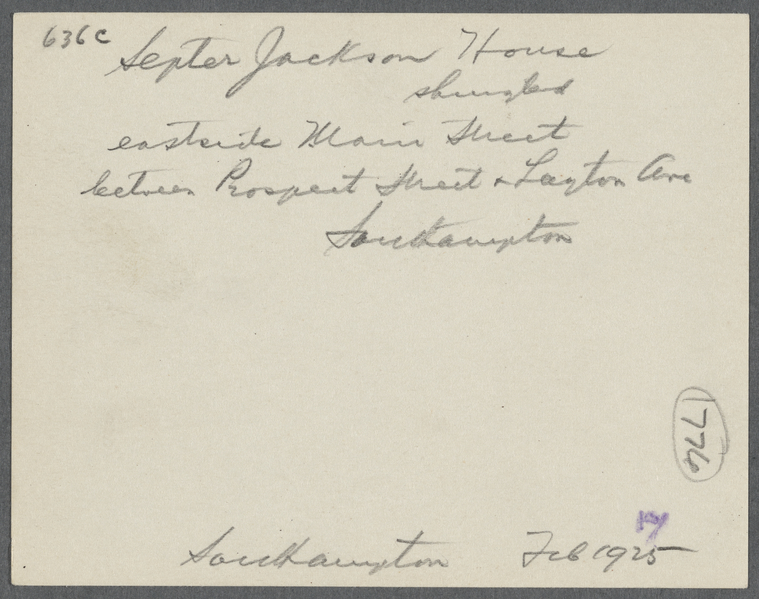 636c
Septer Jackson House
shingled
eastside Main Street
between Prospect Street & Layton Ave
Southampton
1776
7
Southampton Feb 1925